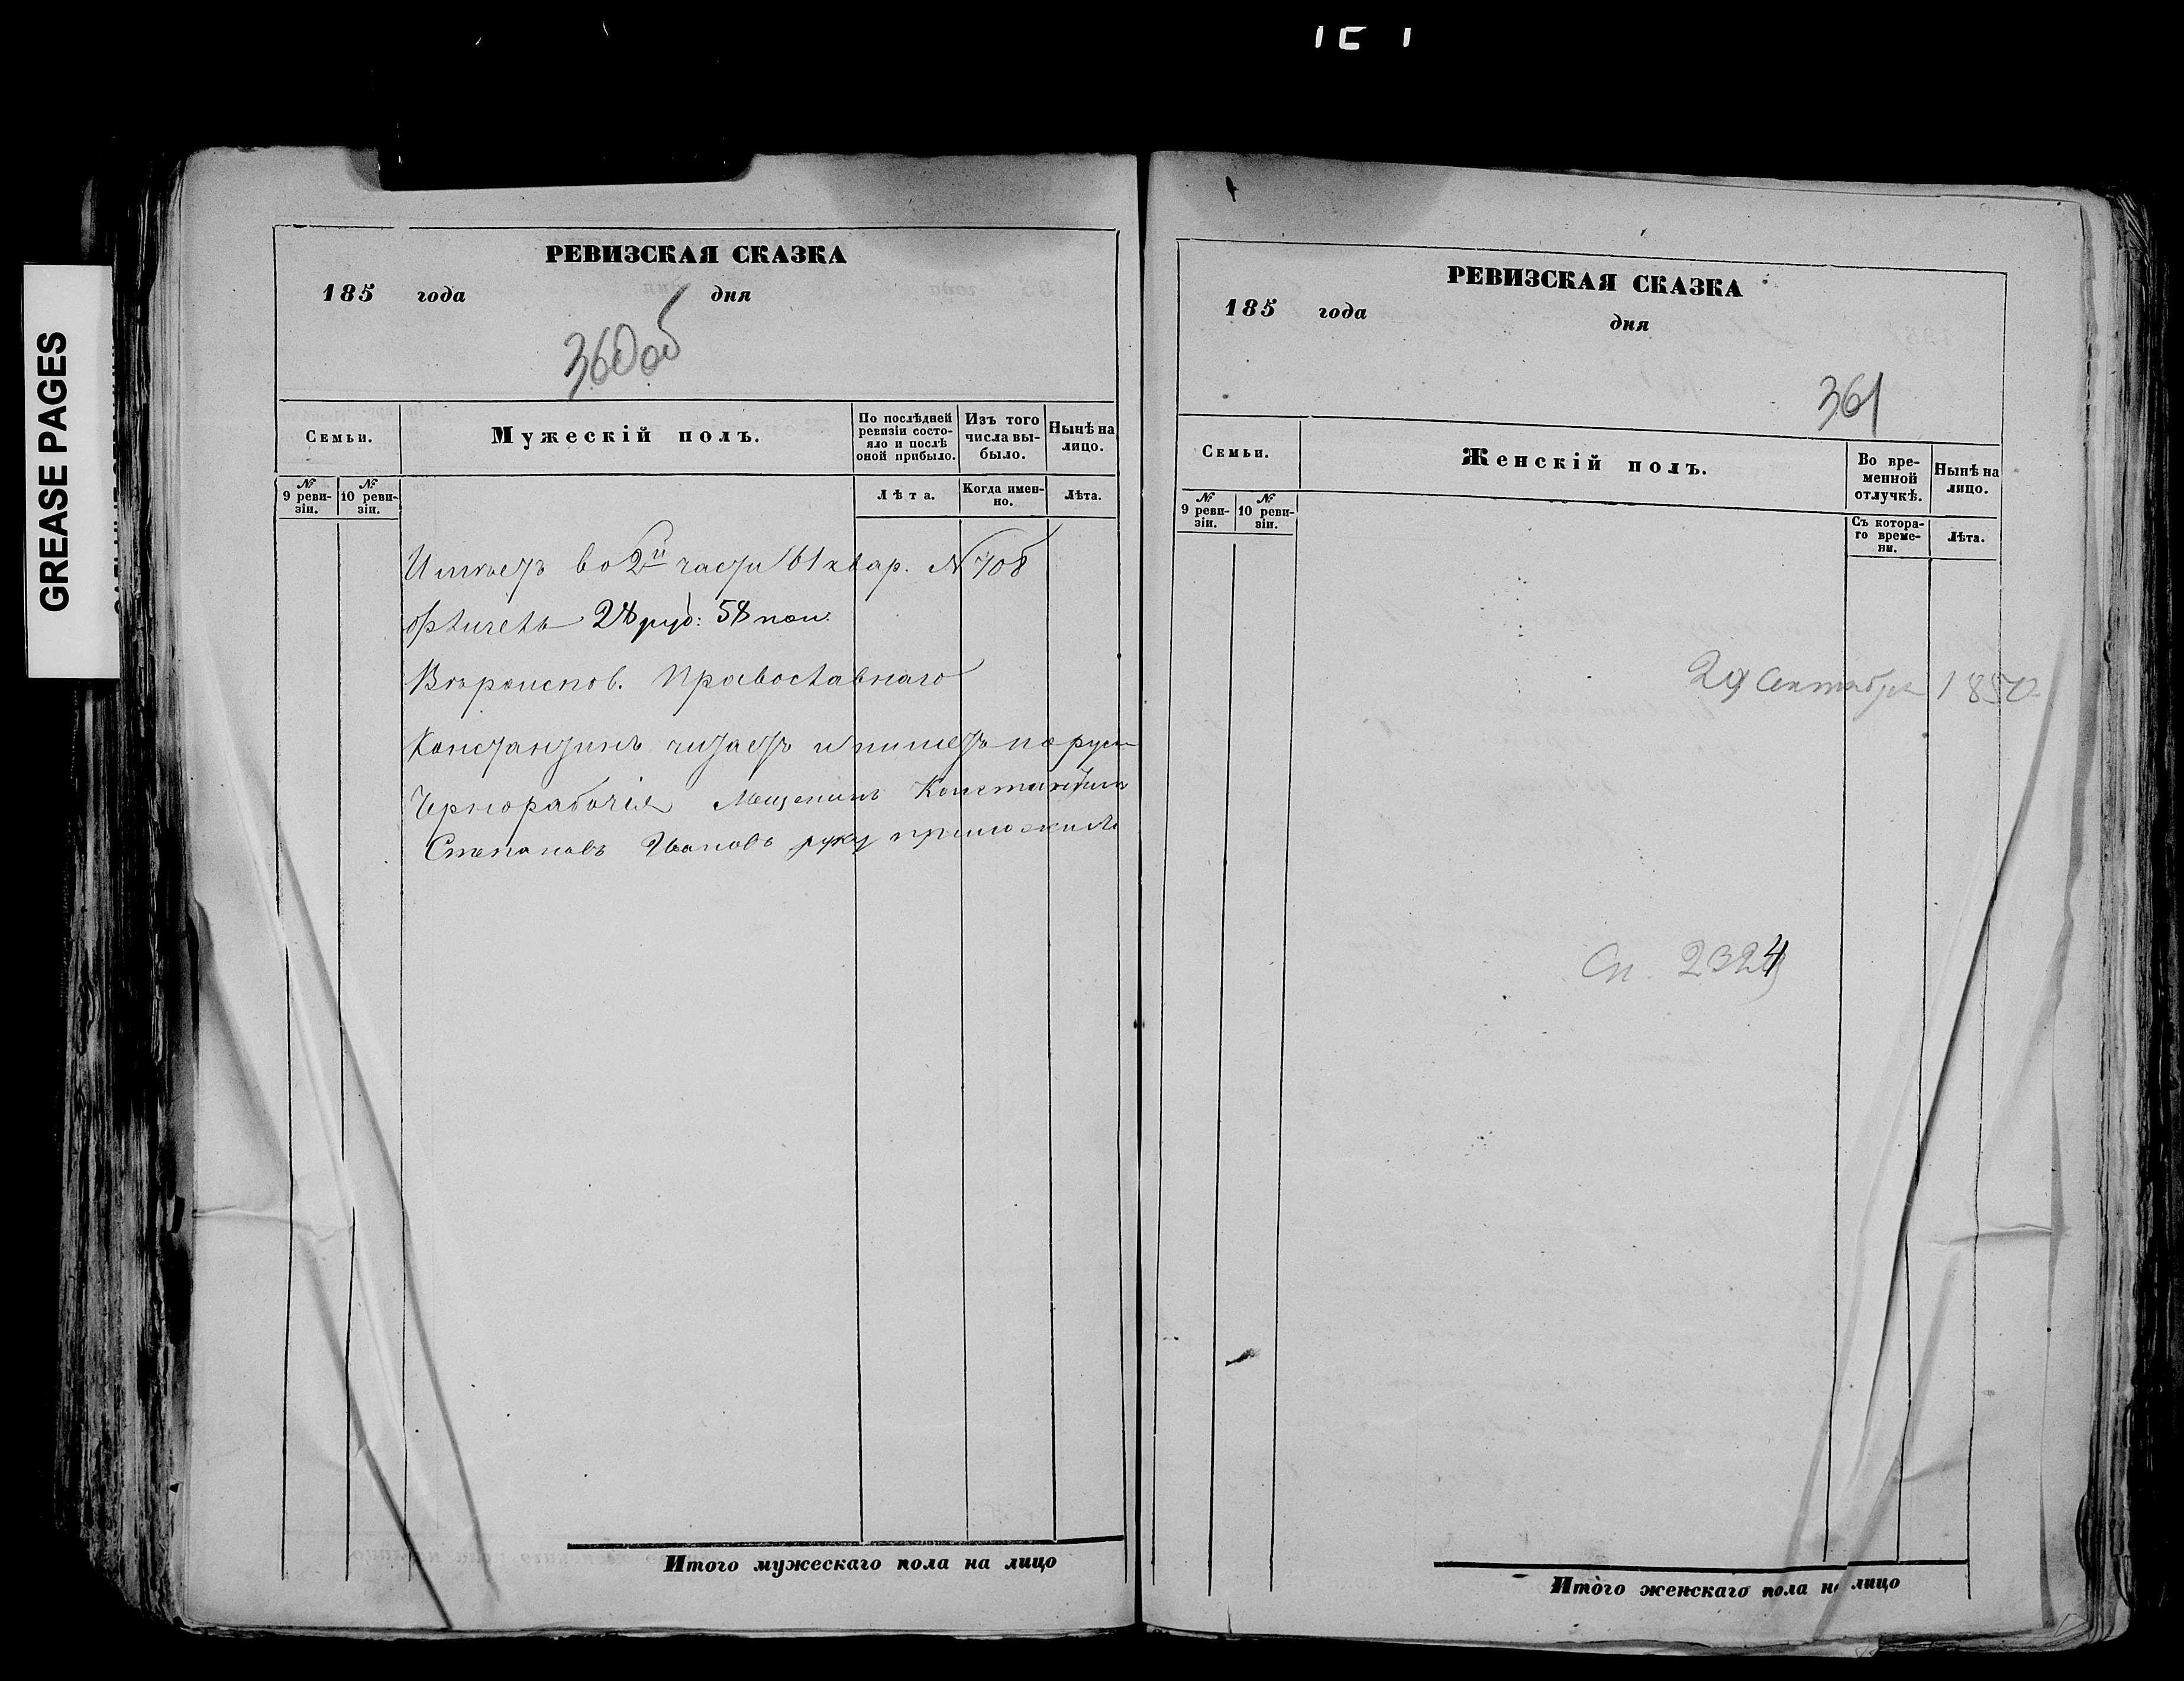 GREASE PAGES
РЕВИЗСКАЯ СКАЗКА
185 года дня
360 об
Семьи.
Мужескій полъ.
По послѣдней ревизіи состояло и послѣ оной прибыло.
Изъ того числа выбыло.
Нынѣ на лицо.
№ 9 ревизіи.
№ 10 ревизіи.
Лѣта.
Когда именно.
Лѣта.
Имѣетъ во 2й части 61 квар. N 708
28 руб: 58 коп.
Вѣроиспов. Православнаго
Константинъ читаетъ и пишетъ по руски
Чернорабочія Мещенинъ Константинъ
Степановъ Ивановъ руку приложилъ
Итого мужескаго пола на лицо
РЕВИЗСКАЯ СКАЗКА
185 года дня
361
Семьи.
Женскій полъ.
Во временной отлучкѣ.
Нынѣ на лицо.
№ 9 ревизіи.
№ 10 ревизіи.
Съ котораго времени.
Лѣта.
Сентября 1850
Сп. 2324
Итого женскаго пола на лицо